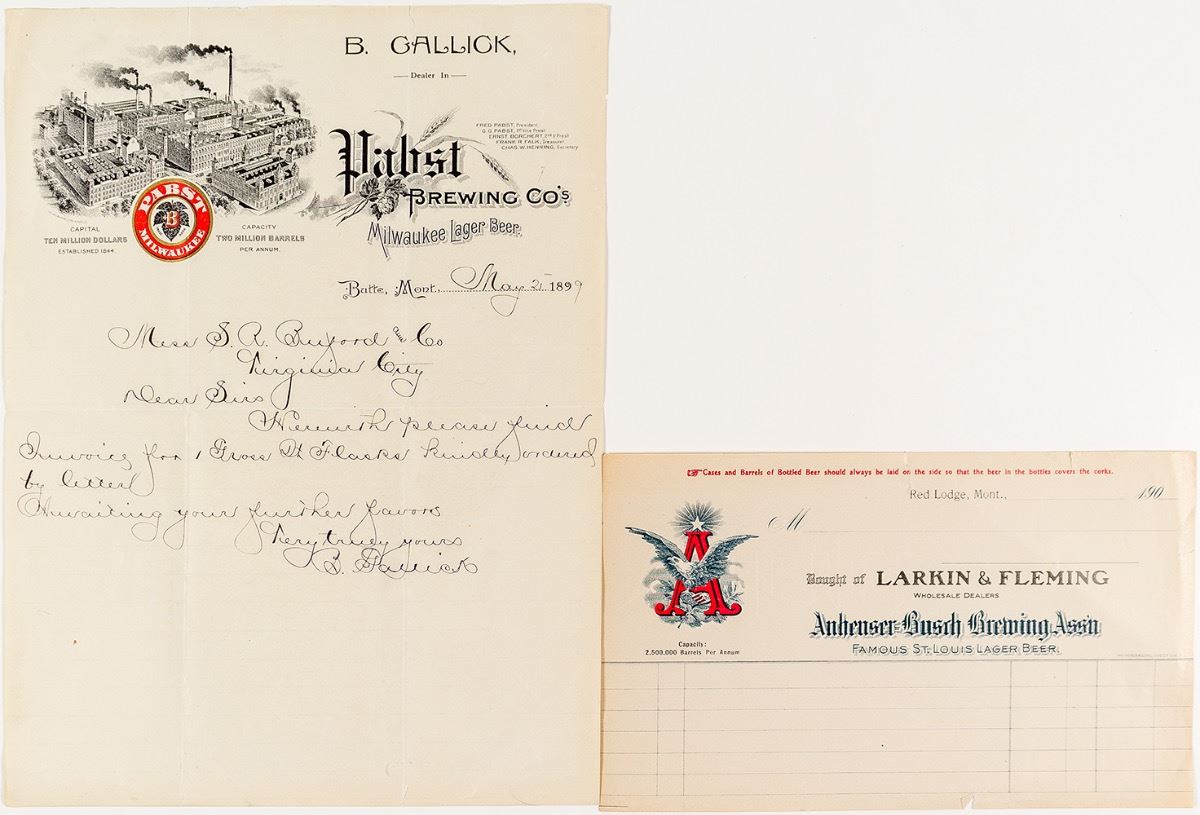 B. GALLICK,
Dealer In
FRED PABST, President
G.G. PABST, 1st Vice Prest
ERNST BORCHERT, 2nd V Prest
FRANK R. FALK, Treasurer
CHAS. W. HENNING, Secretary
Pabst
BREWING CO'S
Milwaukee Lager Beer.
PABST
B
MILWAUKEE
CAPITAL
TEN MILLION DOLLARS
ESTABLISHED 1844.
CAPACITY
TWO MILLION BARRELS
PER ANNUM.
Butte, Mont. May 25 1899
Mess S. R. Buford and Co
Virginia City
Dear Sirs
Herewith please find
Invoice for 1 Gross Pt Flasks kindly ordered
by letter
Awaiting your further favors
Very truly yours
B. Gallick
Cases and Barrels of Bottled Beer should always be laid on the side so that the beer in the bottles covers the corks.
Red Lodge, Mont., 190
M
A
Bought of LARKIN & FLEMING
WHOLESALE DEALERS
Anheuser-Busch Brewing Ass'n
FAMOUS ST. LOUIS LAGER BEER.
Capacity:
2,500,000 Barrels Per Annum